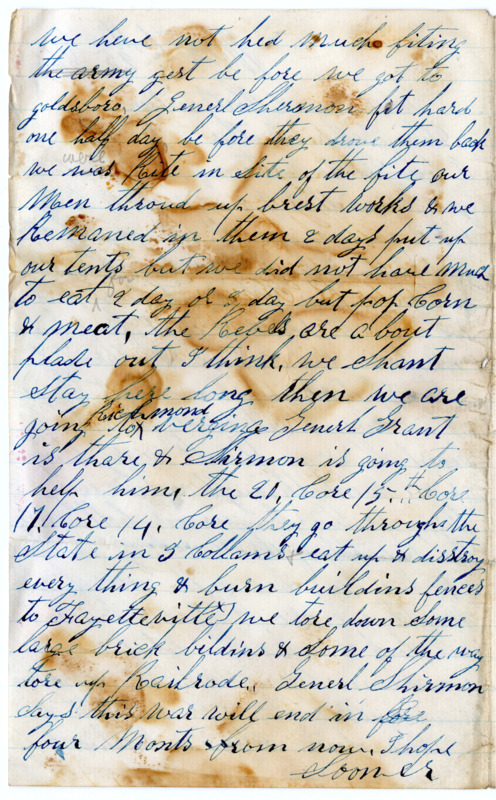 we heve not hed much fiting
the army gest be fore we got to
goldsboro, Generl Shermon fit hard
one half day be fore they drove them back
were
we was Rite in site of the fite our
Men throud up brest works & we
Remaned in them 2 days put up
our tents but we did not have much
to eat 2 day or 3 day but pop Corn
& meat, the Rebels are a bout
plade out I think, we Shant
Stay here long then we are
Richmond
going to vergina Generl Grant
is thare & Shirmon is going to
help him, the 20, Core 15.th Core
17. Core 14. Core they go through the
State in 3 Collams eat up & disstroy
every thing & burn buildins fences
to Fayetteville we tore down some
large brick bildins & some of the way
tore up Railrode, Generl Shirmon
Says this war will end in fore
four Monts from now, I hope
Sooner